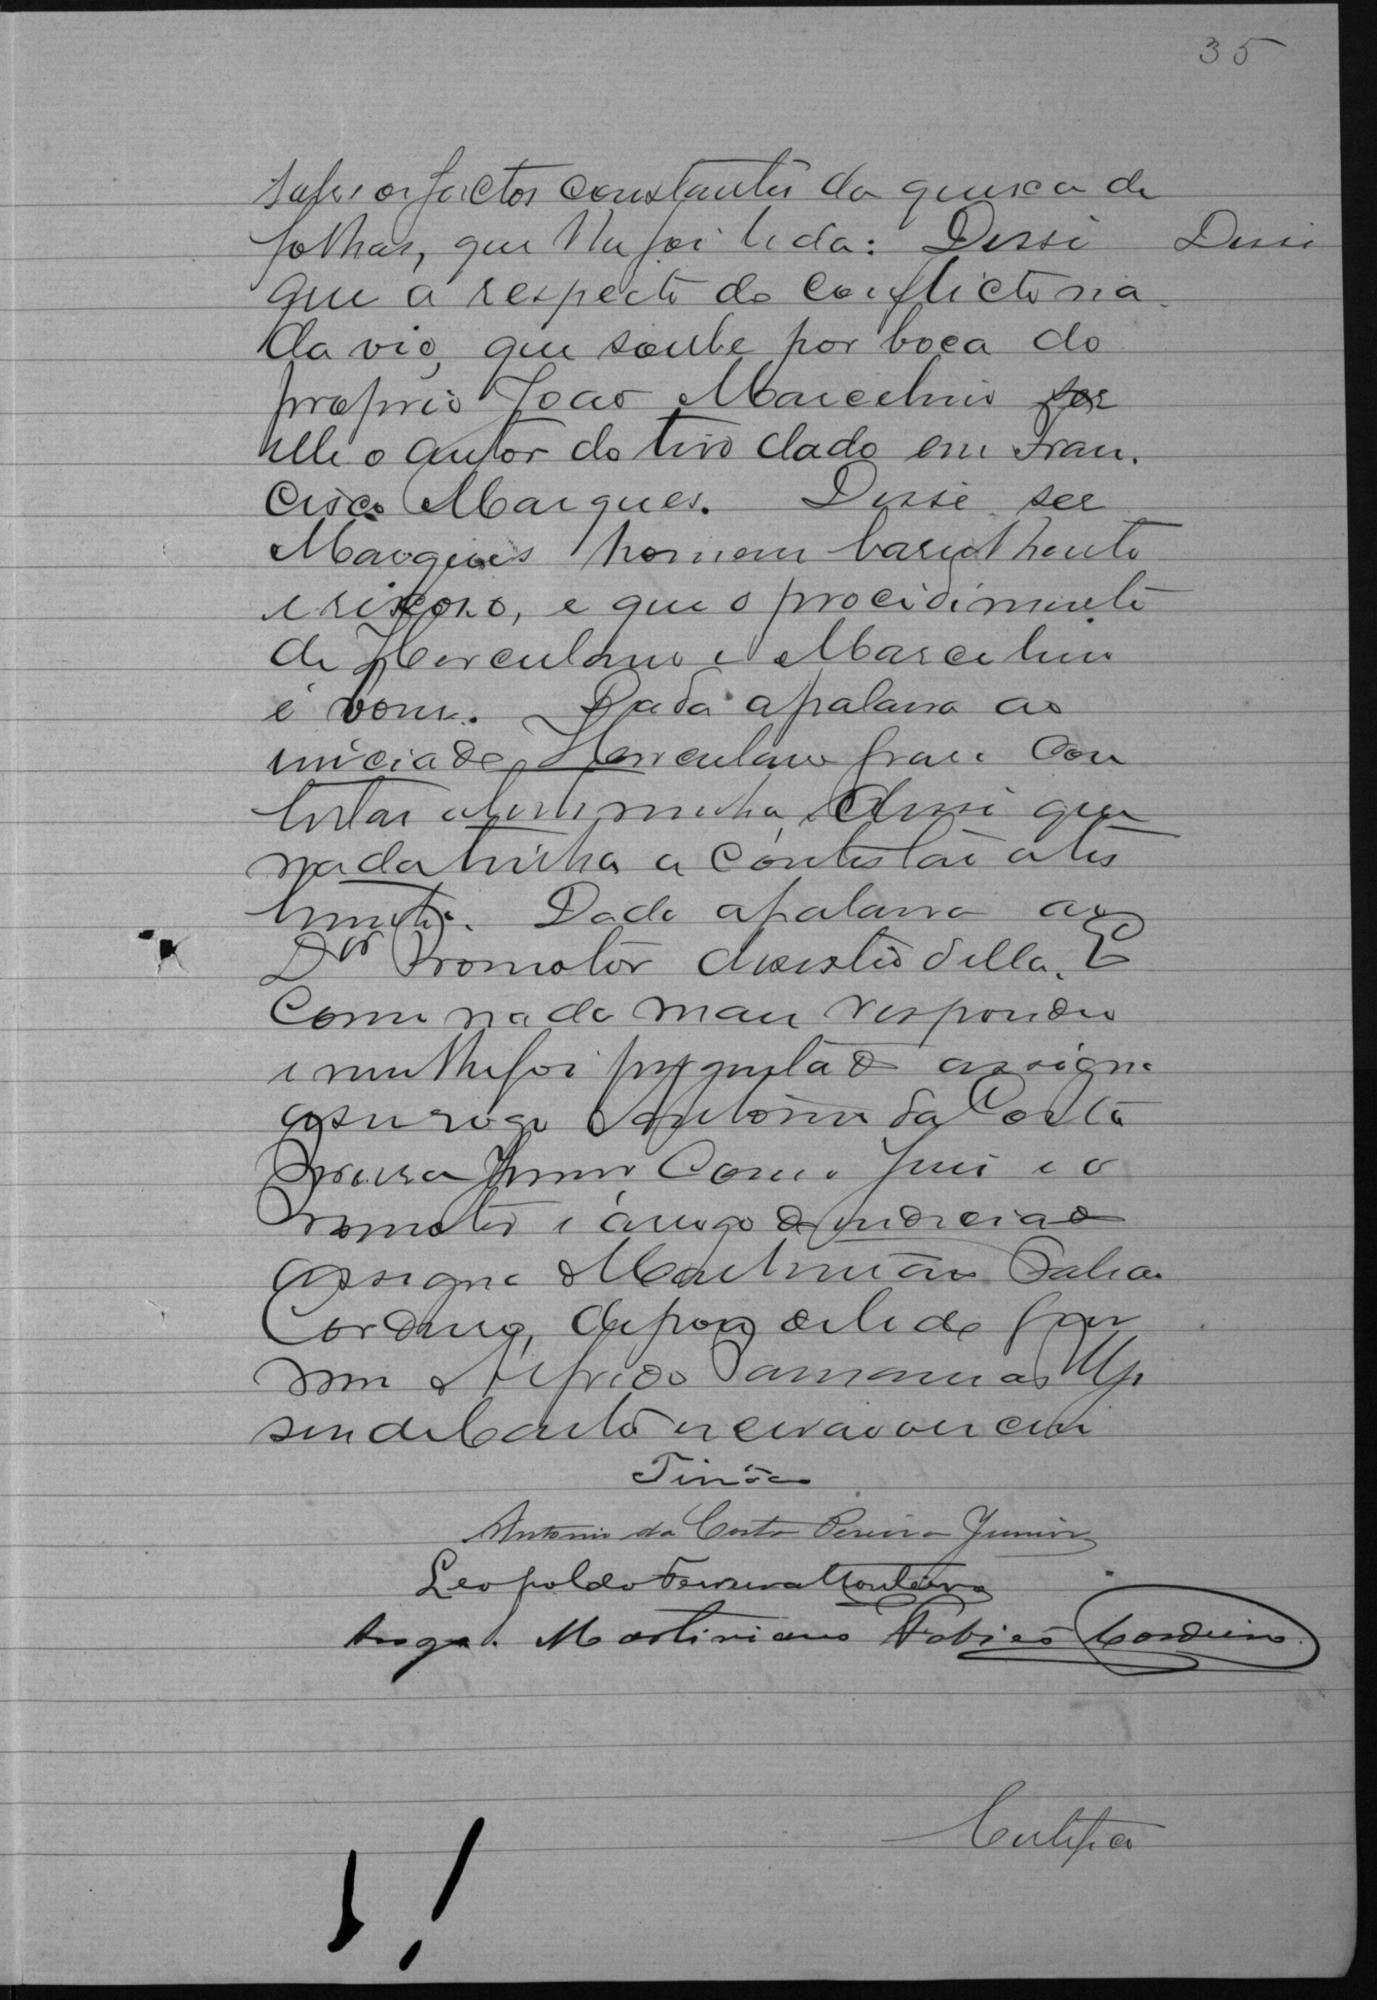 35
sobre os factos constantes da queixa de
folhas, que lhe foi lida: Disse Disse
que a respeito do conflicto na
da vio, que soube por boca do
proprio João Marcelino ser
elle o autor do tiro dado em Fran
cisco Marques. Disse ser
Marques homem barulhento
e rixoso, e que o procidimento
de Herculano e Marcelino
é bom. Dada a palavra ao
iniciado Herculano para con
testar a testimunha, disse que
nada tinha a contestar a tes
timunha. Dada a palavra ao
Dor Promotor desistio della. E
como nada mais respondeu
e nem lhe foi preguntado assigna
a seu rogo Antonio da Costa
Pereira Junior com o Juiz e o
Promotor e á rogo do indiciado
assigna Martiniano Fabião
Cordeiro, depois de lido por
mim Alfredo
escrivão escrevi
Tinôco
Antonio da Costa Pereira Junior
Leopoldo Ferreira Monteiro
Arogo. Martiniano Fabião Cordeiro
Certifico